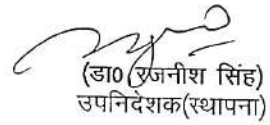 (डा0 रजनीश सिंह)
उपनिदेशक(स्थापना)